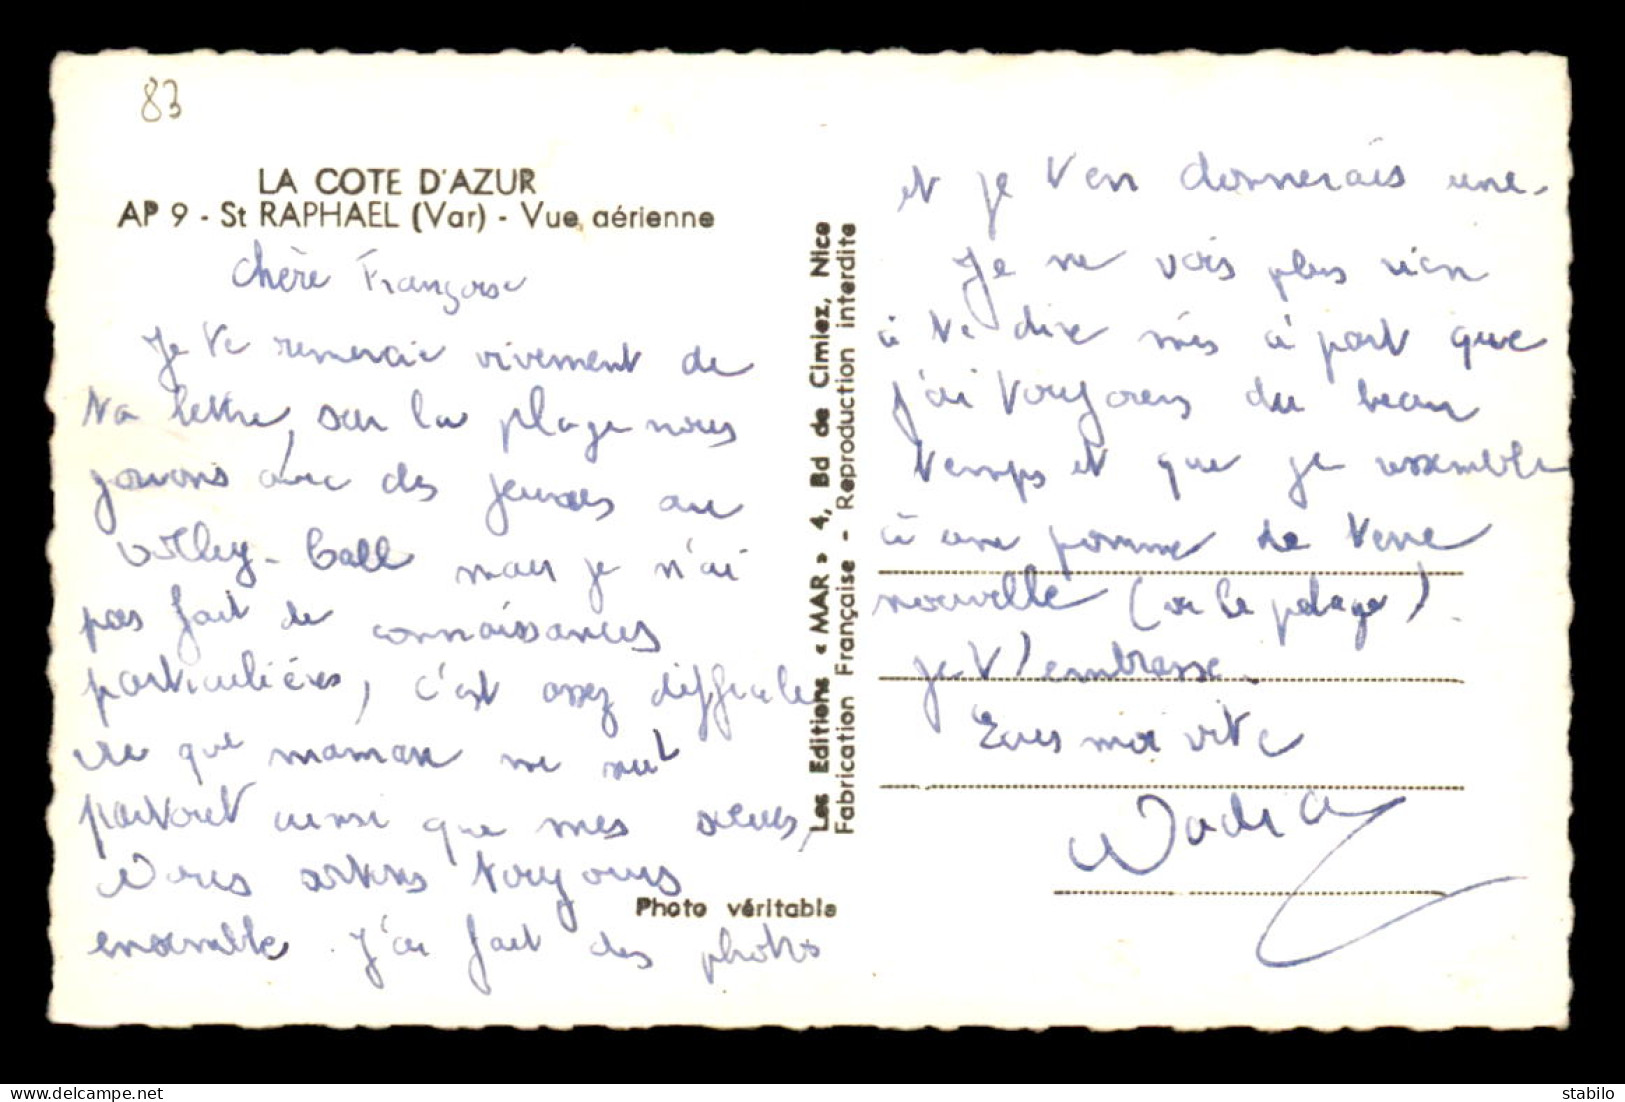 83
LA COTE D'AZUR
AP 9 - St RAPHAEL (Var) - Vue aérienne
chère Françoise
Je te remercie vivement de
ta lettre, sur la plage nous
jouons avec des jeunes au
volley-ball mais je n'ai
pas fait de connaissances
particulières, c'est assez difficile
que maman me suit
partout ainsi que mes
Nous toujours
ensemble. J'ai fait des photos
Les Editions « MAR » 4, Bd de Cimiez, Nice
Fabrication Française - Reproduction interdite
Photo véritable
et je t'en donnerais une.
Je ne vois plus rien
à te dire à part que
j'ai toujours du beau
temps et que je ressemble
à une pomme de terre
nouvelle (vu le pelage).
je t'embrasse.
Ecris moi vite
Nadia
stabilo